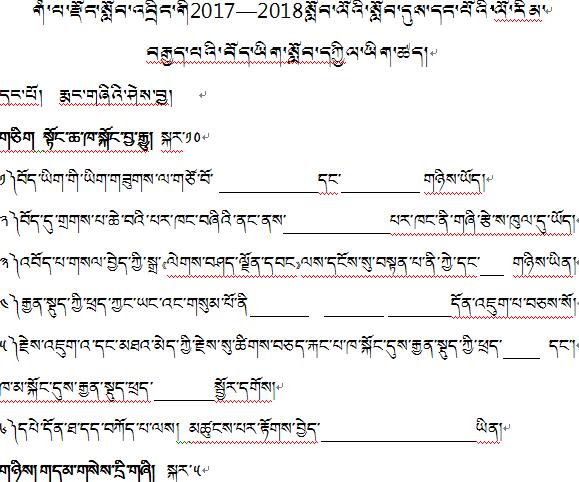 གཾ་པ་རྫོང་སློབ་འབྲིང་གི2017—2018སློབ་ལོའི་སློབ་དུས་དང་པོའི་ལོ་རིམ་
བརྒྱད་པའི་བོད་ཡིག་སློབ་དཀྱིལ་ཡིག་ཚད།
དང་པོ། རྨང་གཞིའི་ཤེས་བྱ།
གཅིག སྟོང་ཆ་ཁ་སྐོང་བྱ་རྒྱུ། སྐར་༡༠
༡༽བོད་ཡིག་གི་ཡིག་གཟུགས་ལ་གཙོ་བོ་ ____________དང་__________ གཉིས་ཡོད།
༢༽བོད་དུ་གྲགས་པ་ཆེ་བའི་པར་ཁང་བཞིའི་ནང་ནས་_____________པར་ཁང་ནི་གཞི་རྩེ་ས་ཁུལ་དུ་ཡོད།
༣༽འབོད་པ་གསལ་བྱེད་ཀྱི་སྒྲ་《ལེགས་བཤད་ལྗོན་དབང》ལས་དངོས་སུ་བསྟན་པ་ནི་ཀྱེ་དང་___ གཉིས་ཡིན།
༤༽རྒྱན་སྡུད་ཀྱི་ཕྲད་ཀྱང་ཡང་འང་གསུམ་པོ་ནི________ ________ ________དོན་འཇུག་པ་བཅས་སོ།
༥༽རྗེས་འཇུག་འ་དང་མཐའ་མེད་ཀྱི་རྗེས་སུ་ཚིགས་བཅད་རྐང་པ་ཁ་སྐོང་དུས་རྒྱན་སྡུད་ཀྱི་ཕྲད་_____ དང་།
ཁ་མ་སྐོང་དུས་རྒྱན་སྡུད་ཕྲད་________སྦྱོར་དགོས།
༦༽དཔེ་དོན་ཐ་དད་བཀོད་པ་ལས། མཚུངས་པར་རྟོགས་བྱེད་____________________ ཡིན།
གཉིས། གདམ་གསེས་དྲི་གཞི། སྐར་༥